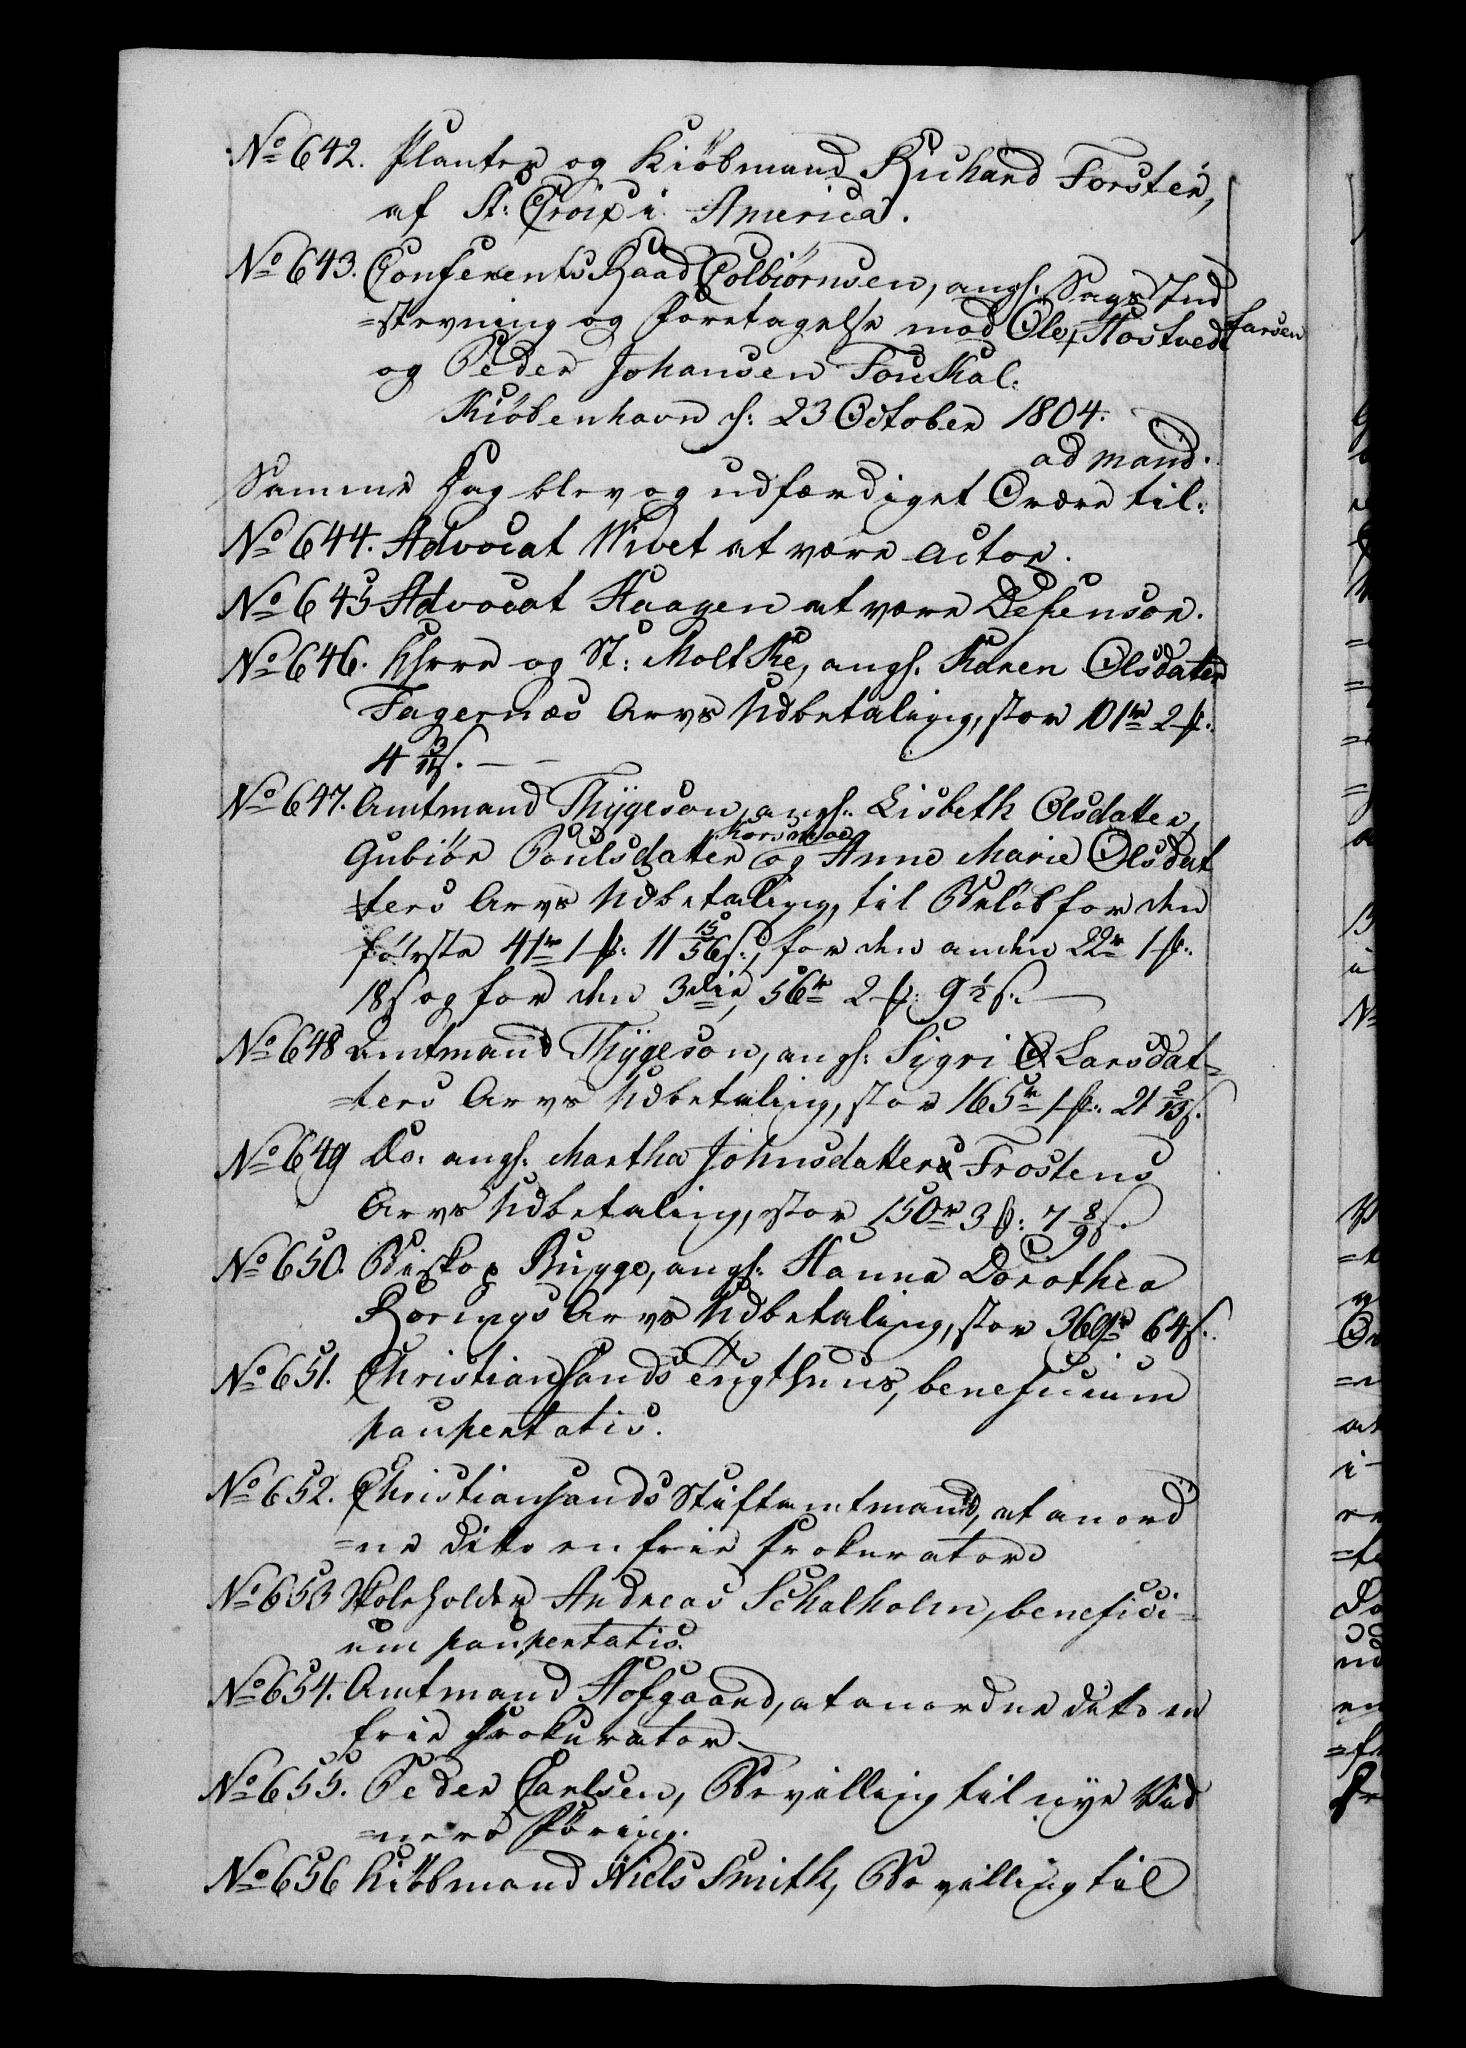 No 642. Planter og Kiöbmand Richard Forster,
af St: Croix i America.
No 643. Conferents Raad Colbiörnsen, angs. Sags Ind
=stevning og Foretagelse mod Ole Larsen Hostvedt
og Peder Johansen Fouskal.
Kiöbenhavn d: 23 October 1804.
ad mand.
Samme Dag blev og udfærdiget Ordre til:
No 644. Advocat Wivet at være Actor.
No 645 Advocat Haagen at være Defensor.
No 646. Khrre og St: Moltke, angs. Karen Olsdatter
Fagernæs Arvs Udbetaling, stor 101 r 2 #:
4 3/11 s. — —
No 647. Amtmand Thygeson, angs: Lisbeth Olsdatter,
Gubiör Poulsdatter Korsmoe og Anne Marie Olsdat
ters Arvs Udbetaling, til Belöb for den
förste 41 r 1 #: 11 15/56 s:, for den anden 22 r 1 #:
18 s og for den 3die, 56 r 2 #: 9 1/2 s. —
No 648 Amtmand Thygeson, angs: Sigri Larsdat=
=ters Arvs Udbetaling, stor 165 r 1 #: 21 2/13 s.
No 649 Do: angs. Martha Johnsdatter Frostens
Arvs Udbetaling, stor 150 r 3 #: 7 8/9 s.
No 650. Biskop Bugge, angs: Hanne Dorothea
Rørings Arvs Udbetaling, stor 369 r 64 s.
No 651. Christiansands Tugthuus, beneficium
paupertatis.
No 652. Christiansands Stiftamtmand, at anord
=ne dito en frie Prokurator
No 653 Skoleholder Andreas Schalholm, benefici=
um paupertatis.
No 654. Amtmand Hofgaard, at anordne dito en
frie Prokurator
No 655. Peder Carlsen, Bevilling til nye Vid
=ners Föring.
No 656 Kiöbmand Niels Smith, Bevilling til